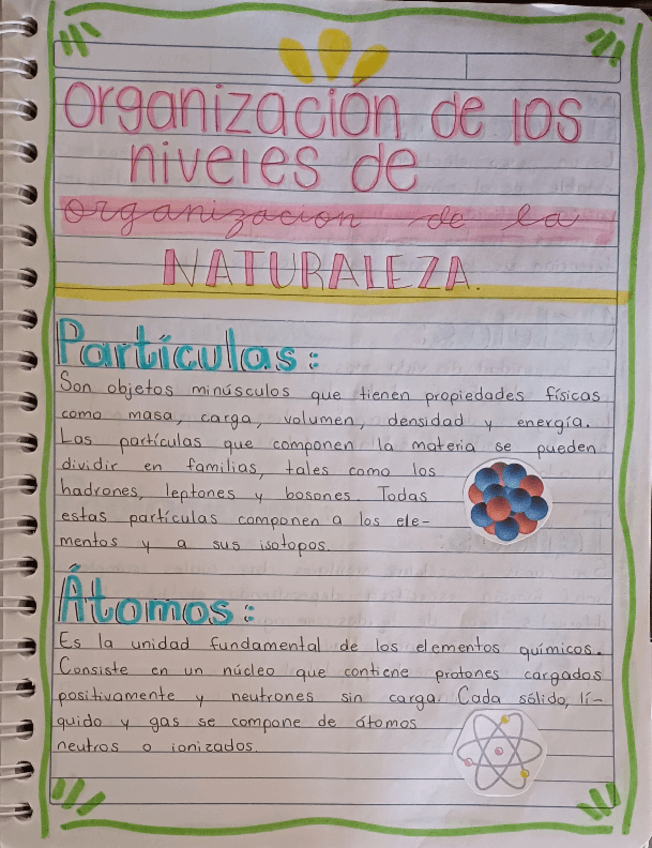 organización de los
niveles de
organizacion de la
NATURALEZA.
Partículas:
Son objetos minúsculos que tienen propiedades físicas
como masa, carga, volumen, densidad y energía.
Las partículas que componen la materia se pueden
dividir en familias, tales como los
hadrones, leptones y bosones. Todas
estas partículas componen a los ele-
mentos y a sus isotopos.
Átomos:
Es la unidad fundamental de los elementos químicos.
Consiste en un núcleo que contiene protones cargados
positivamente y neutrones sin carga. Cada sólido, lí-
quido y gas se compone de átomos
neutros o ionizados.